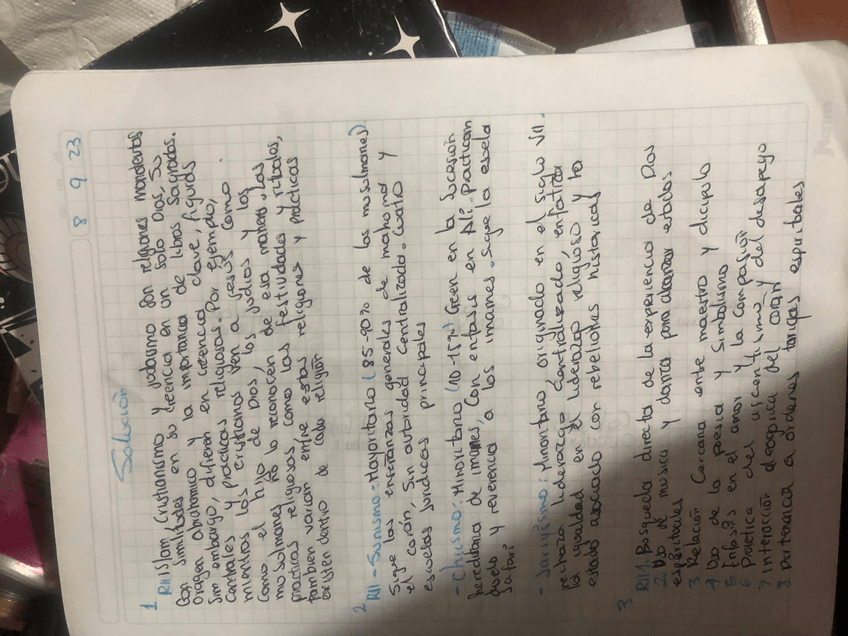 8 9 23
Solución
1 R// islam, Cristianismo y judaismo son religiones monoteistas
Con similitudes en su creencia en un solo Dios, su
Origen abrahamico y la importancia de libros Sagrados.
Sim embargo, difieren en creencia clave, figuras
Centrales y prácticas religiosas. Por ejemplo,
mientros los cristianos ven a jesús como
Como el hijo de Dios, los judíos y los
musulmanes no lo reconocen de esa manera. Las
practicas religiosas, como las festividades y rituales,
tambien varian entre estas religiones y prácticas
existen dentro de cada religión
2 R// - Sunismo: Mayoritario (85-90% de los musulmanes).
Sigue las enseñanzas generales de mahoma y
el corán, Sin autoridad Centralizada. Cuatro
escuelas jurídicas principales
- Chiismo: Minoritario (10-15%) Creen en la Sucesión
hereditaria de imames, Con enfasis en Ali. Practican
duelo y reverencia a los imames. Sigue la escuela
Jafari
- Jariyismo: Minoritario, originado en el siglo VII.
rechaza liderazgo Centralizado, enfatiza
la igualdad en el liderazgo religioso y ha
estado asociado con rebeliones historicas
3 R// 1. Búsqueda directa de la experiencia de Dios
2. Uso de musica y danza para alcanzar estados
espirituales
3 Relación Cercana entre maestro y dicipulo
4 Uso de la poesia y simbolismo
5 Enfasis en el amor y la compasión
6 Práctica del y del desapego
7 Interacción alegorica del corán
8 pertenencia a órdenes tariqas espirituales